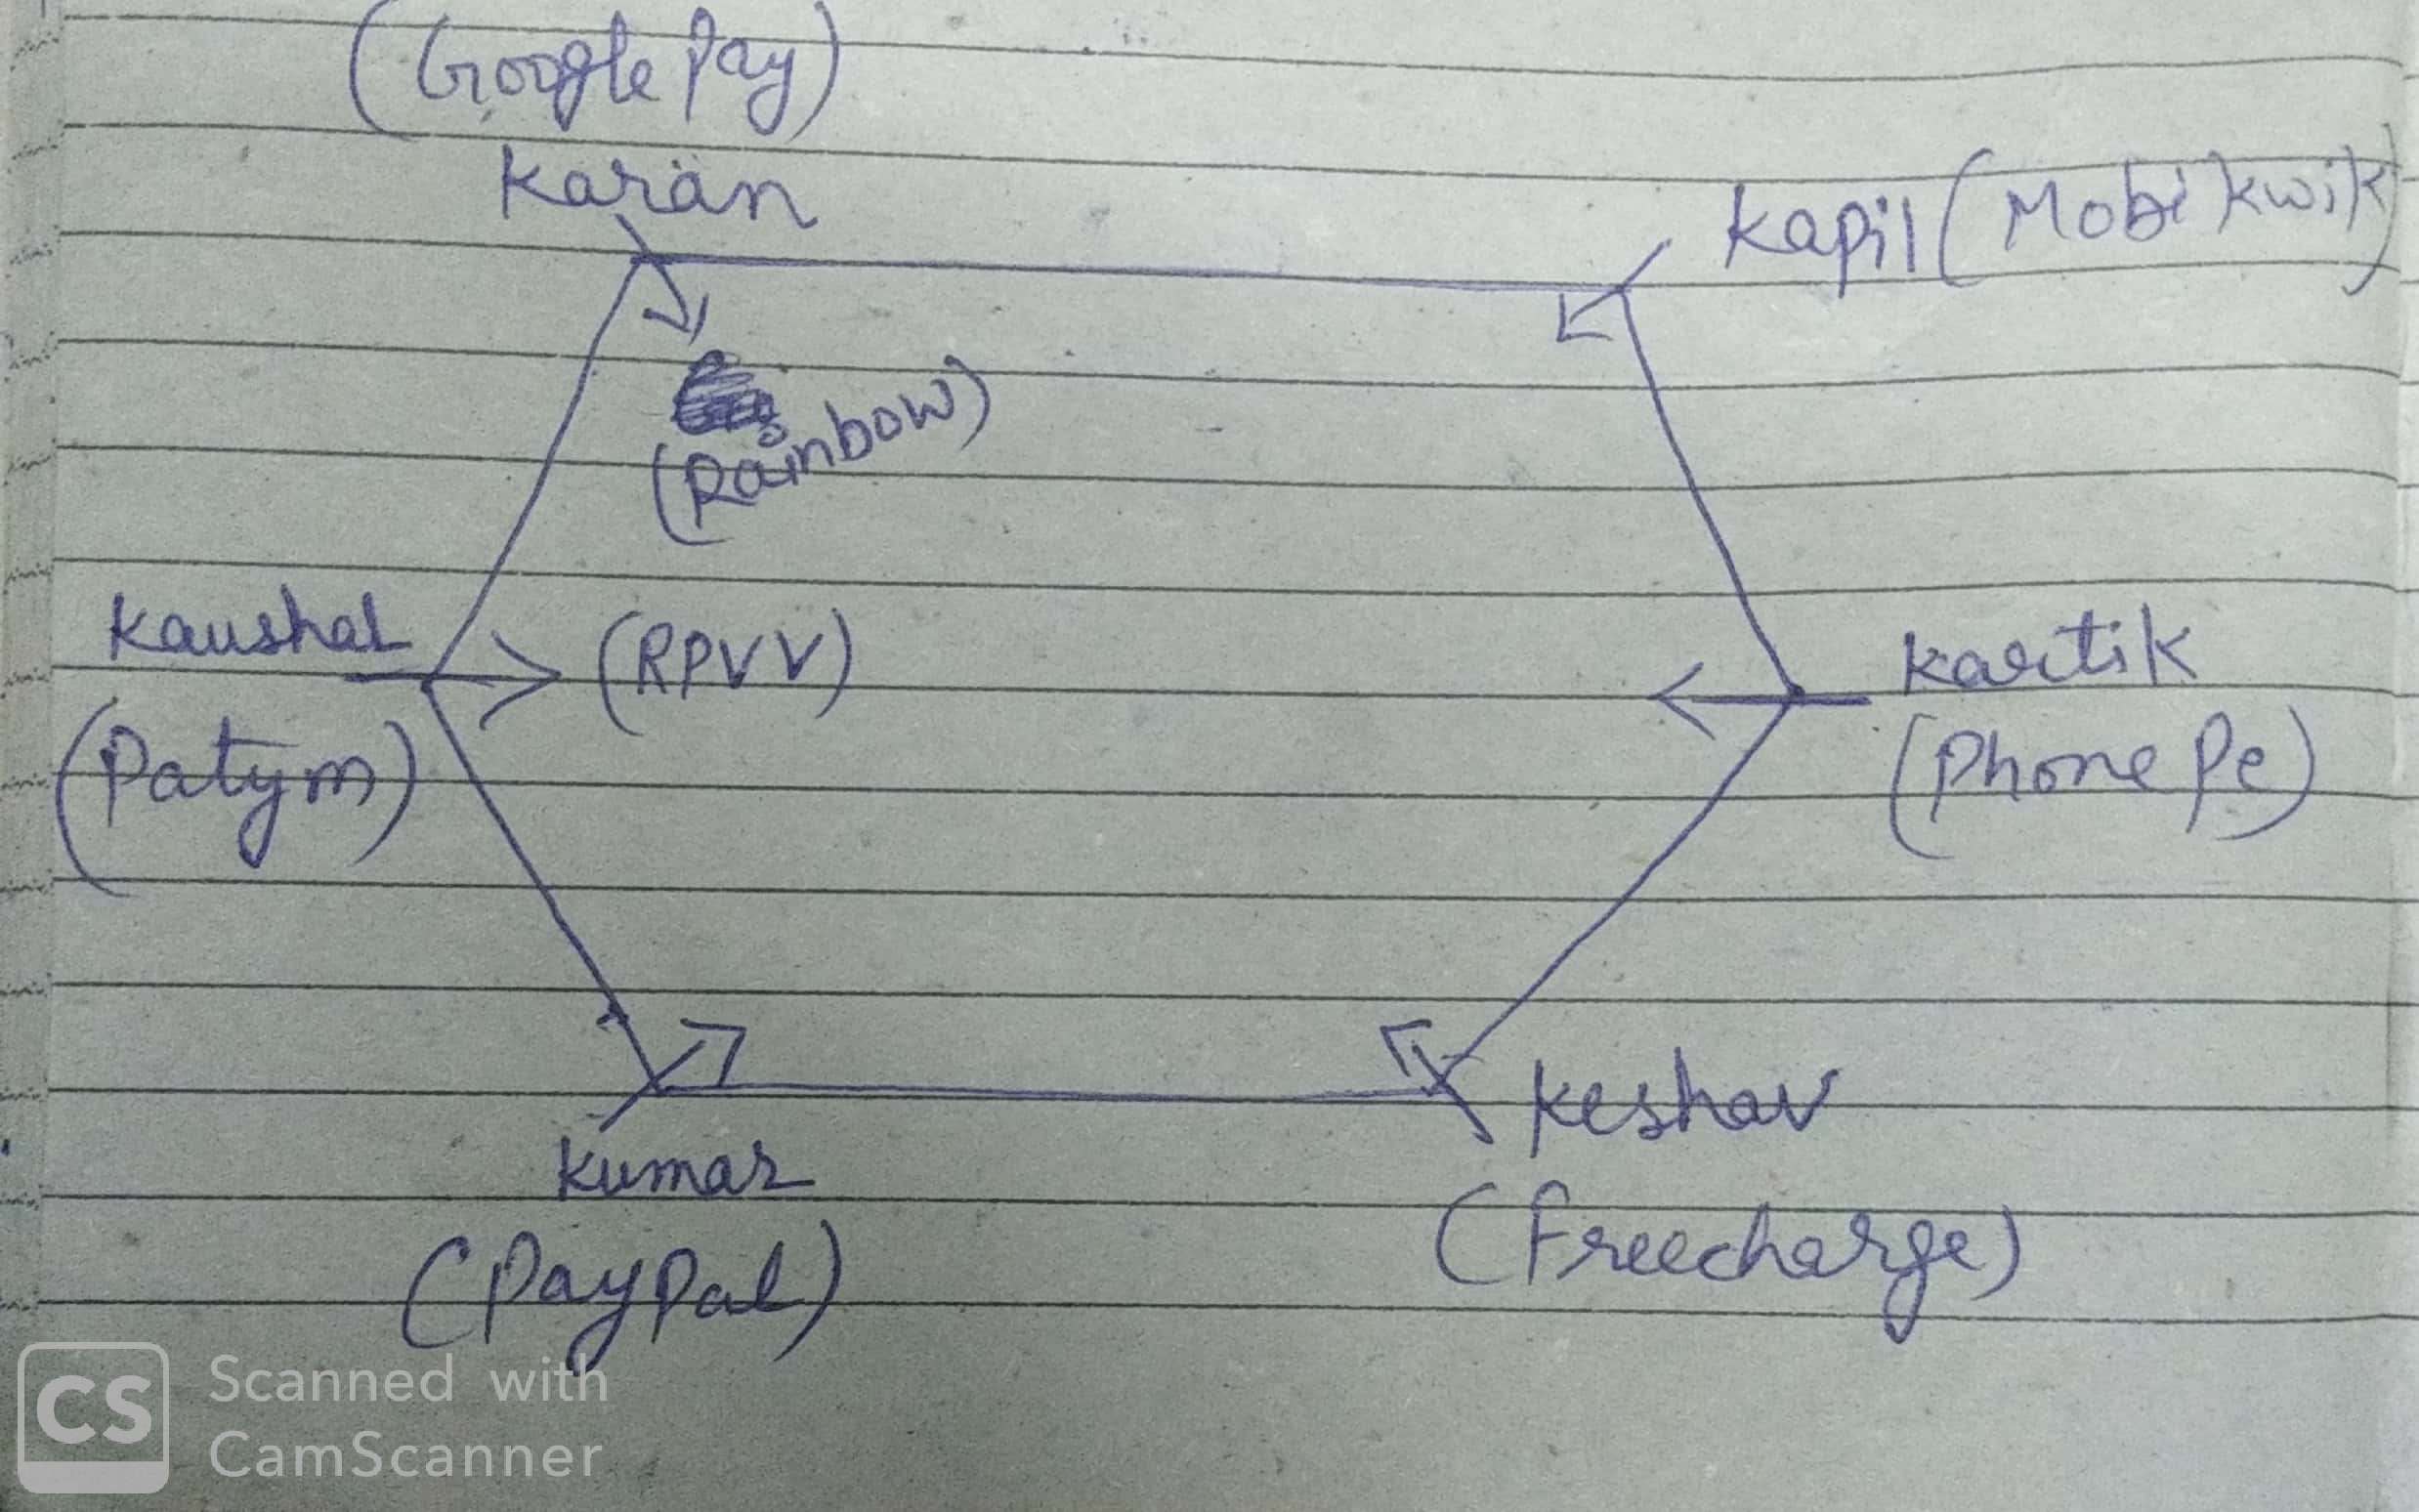 (Google Pay)
Karan
Kapil (Mobikwik)
(Rainbow)
Kaushal
(RPVV)
Kartik
(Patym)
(Phone Pe)
Keshav
Kumar
(Freecharge)
(PayPal)
CS
Scanned with
CamScanner